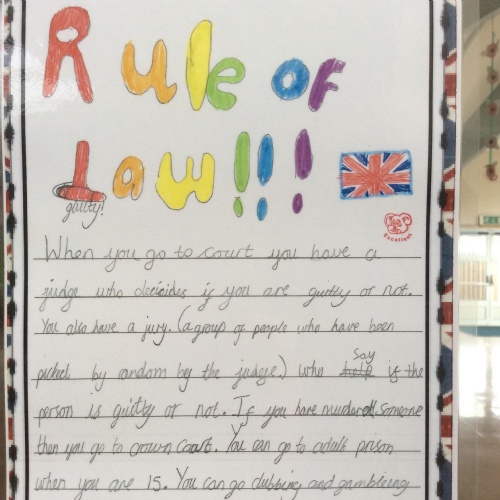 Rule of
Law!!!
guilty!
Excellent
When you go to court you have a
judge who decicides if you are guilty or not.
You also have a jury. (a group of people who have been
picked by random by the judge.) who say is the
person is guilty or not. If you have murdered someone
then you go to crown court. You can go to adult prison
when you are 15. You can go clubbing and gambleing